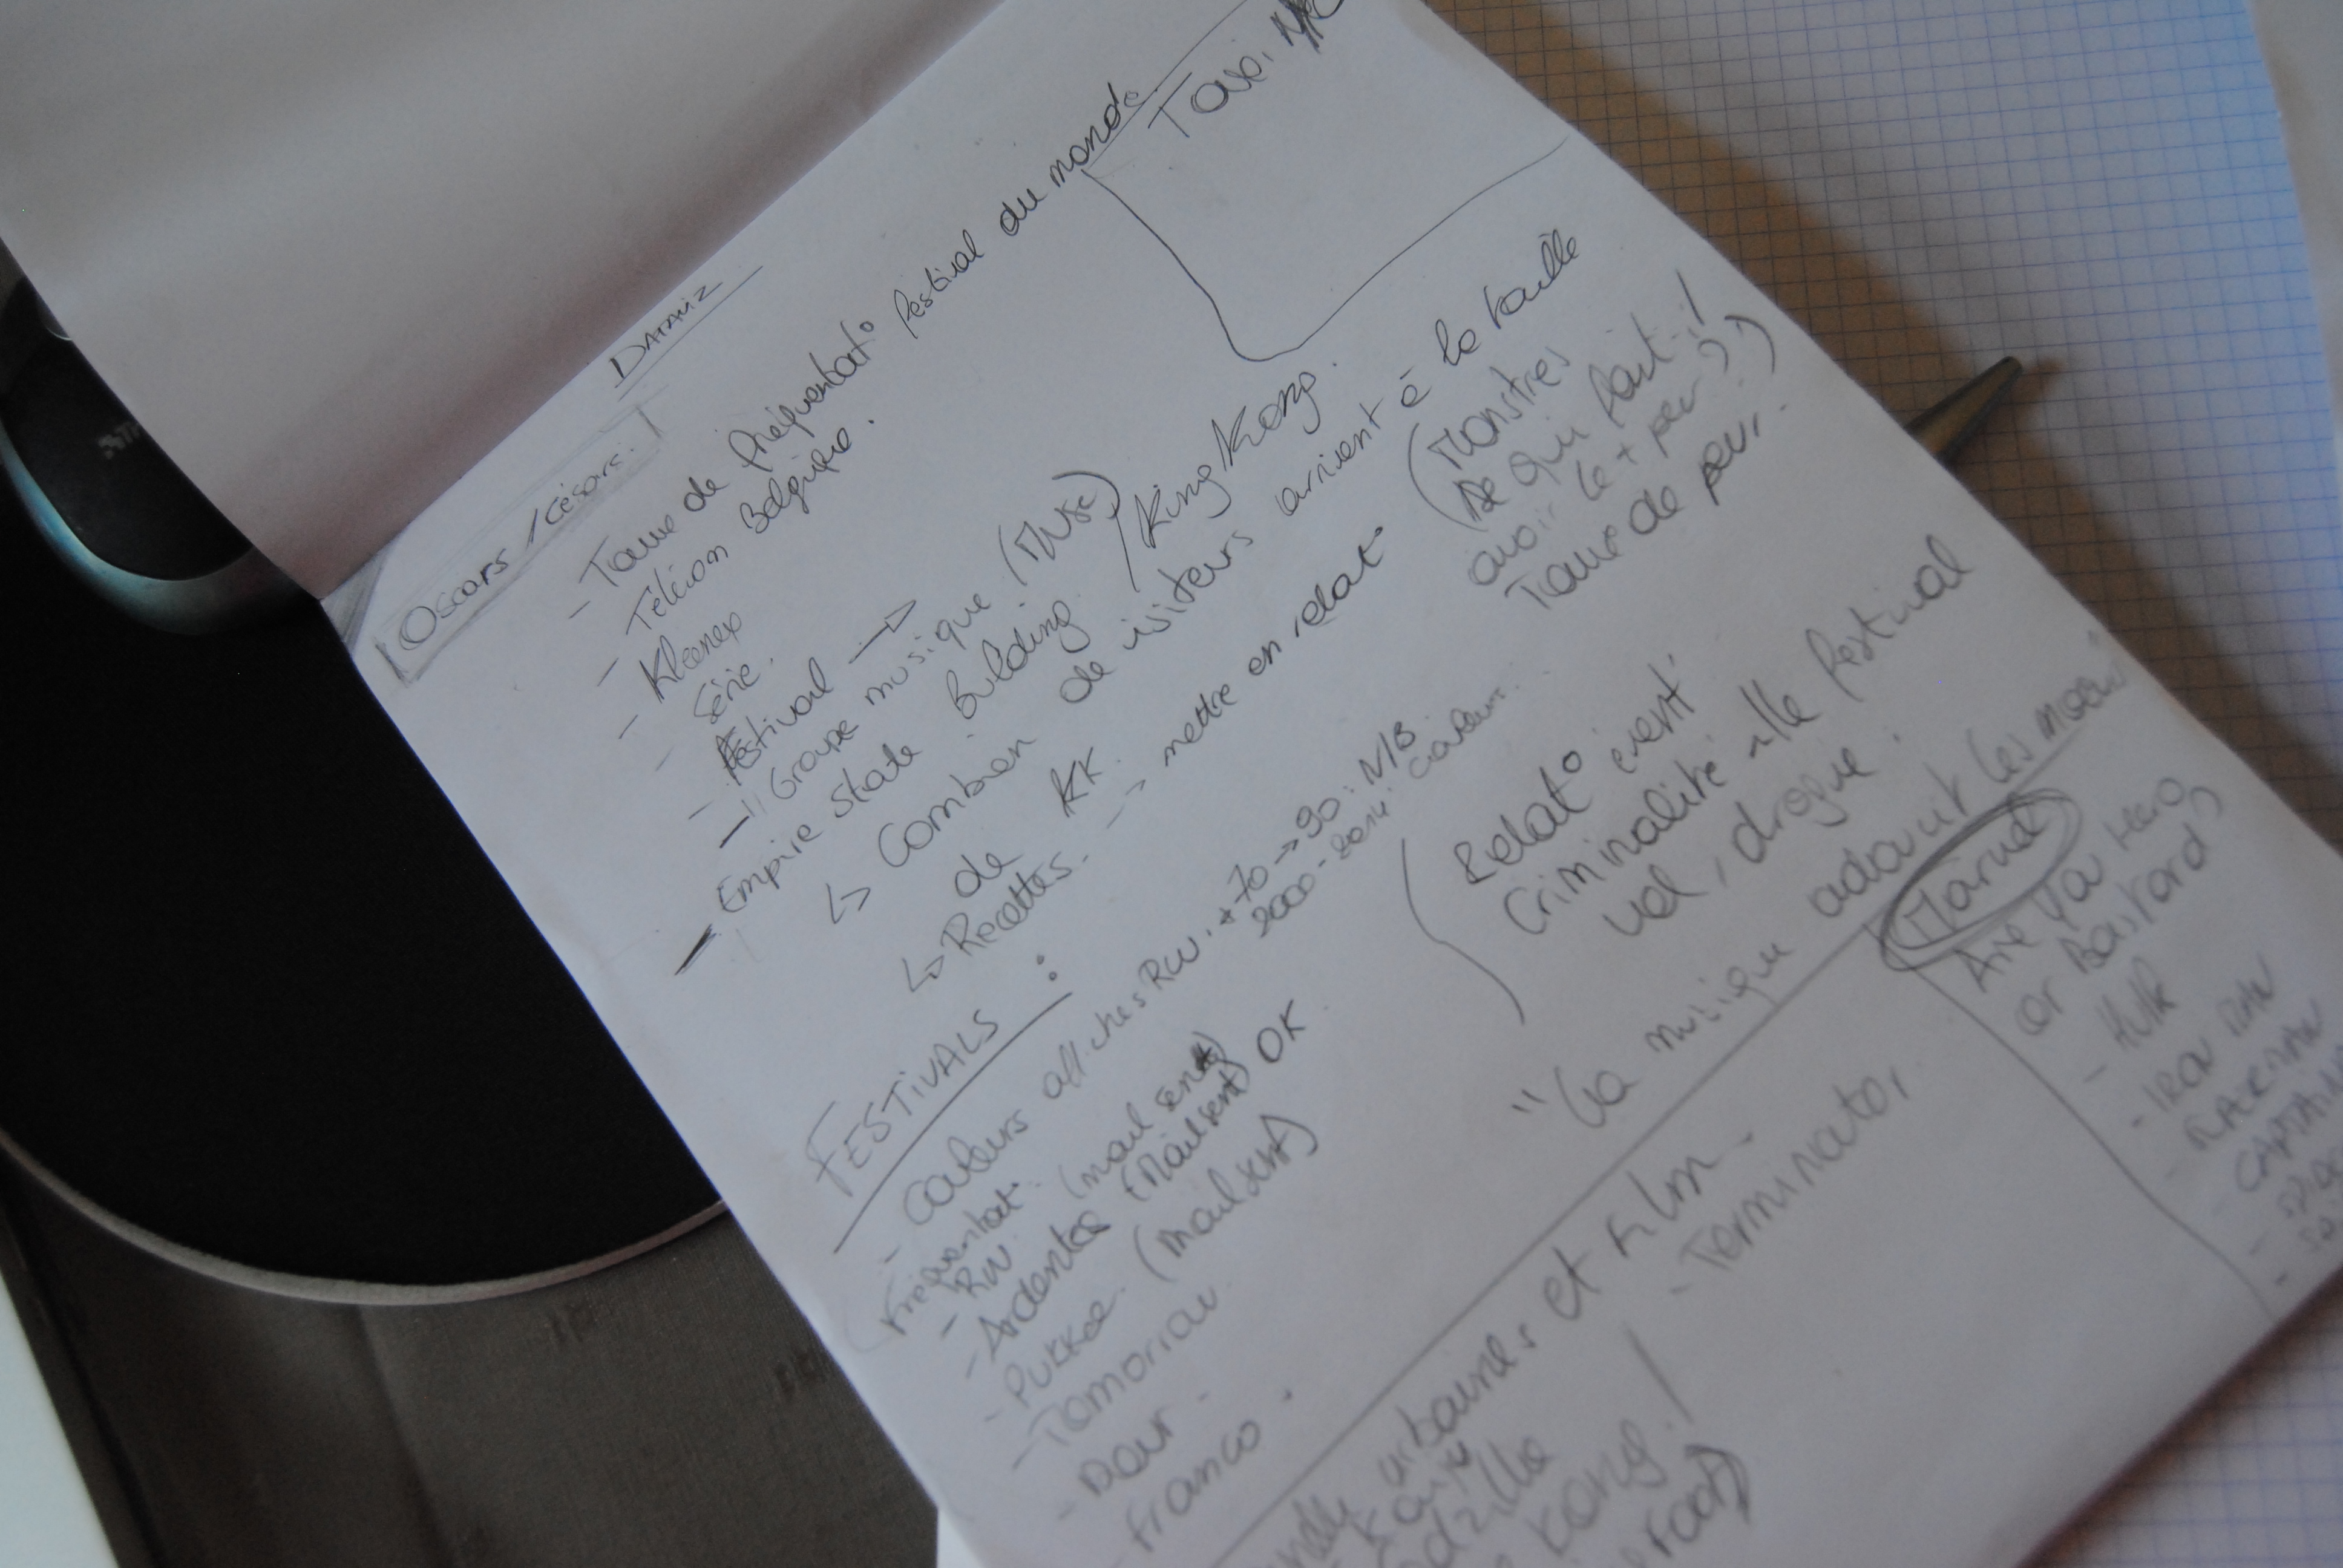 DATAVIZ
Oscars / Césars.
Taxi NYC
- Taux de fréquentat° festival du monde.
Télécom Belgique.
- Kleenex
- Série.
- Festival →
- Groupe musique (Muse)
- Empire State Building / King Kong.
↳ Combien de visiteurs arrivent à la taille
de KK.
↳ Recettes. → mettre en relat°
(Monstres
De qui faut-il
avoir le + peur ?)
Taux de peur.
FESTIVALS :
- Couleurs affiches RW. + 70 → 90 : N/B
2000-2014 couleur...
Fréquentat° (mail sent)
- RW
- Ardentes (Mail sent) OK
- Pukkel. (mail sent)
- Tomorrow
- Dour.
- Franco.
Relat° event
Criminalité ville festival
vol, drogue.
"La musique adoucit les moeurs"
Marvel
Are you Hero
or Bastard ?
- Hulk
- IRON MAN
- BATMAN
- CAPTAIN
urbaines et Film.
- Terminator
Kaiju
Kong.